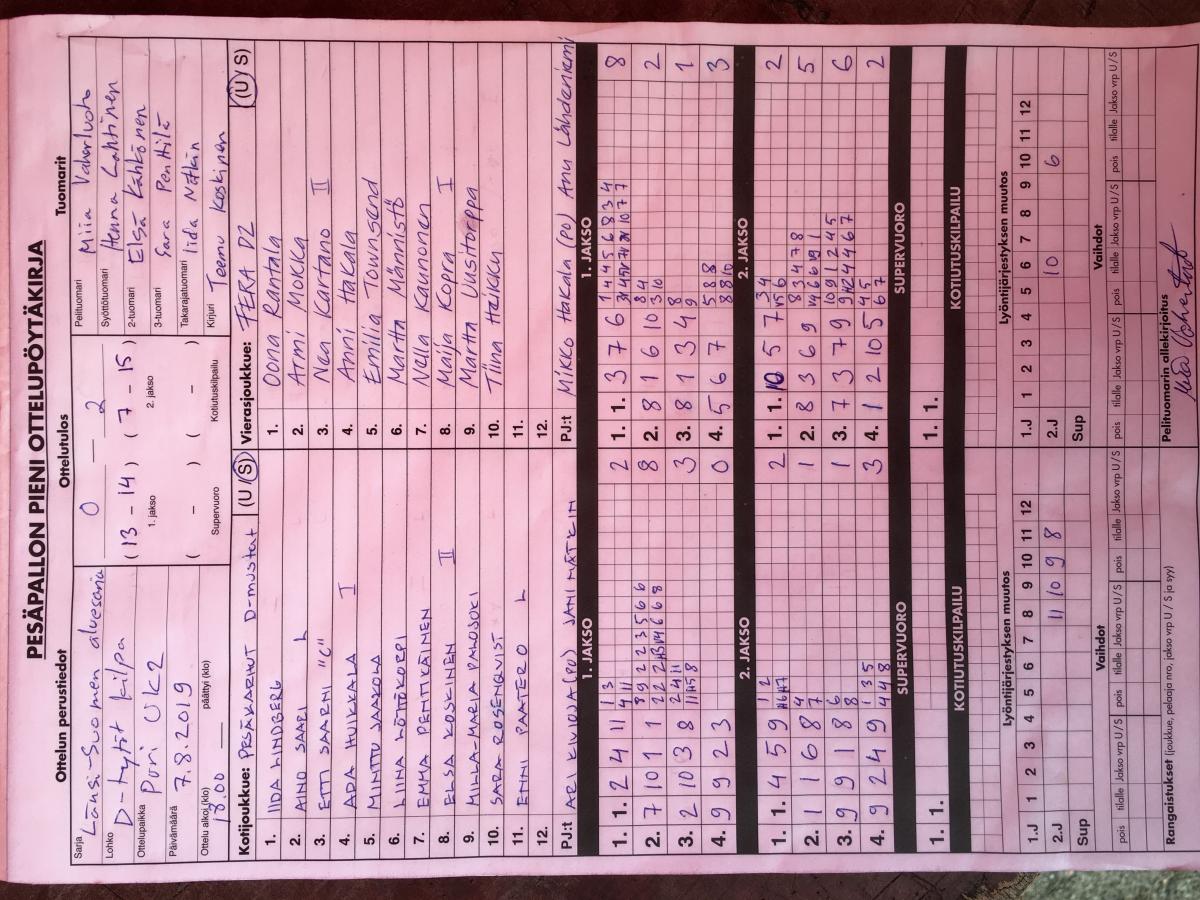 PESÄPALLON PIENI OTTELUPÖYTÄKIRJA
Ottelun perustiedot
Sarja Länsi-Suomen aluesarja
Lohko D-tytöt kilpa
Ottelupaikka Pori UK2
Päivämäärä 7.8.2019
Ottelu alkoi (klo) 18.00 päättyi (klo)
Ottelutulos
0 – 2
(13 – 14) (7 – 15)
1. jakso 2. jakso
( – ) ( – )
Supervuoro Kotiutuskilpailu
Tuomarit
Pelituomari Miia
Syöttötuomari Henna Lahtinen
2-tuomari Elsa Kähkönen
3-tuomari Sara Penttilä
Takarajatuomari Iida Nätkin
Kirjuri Teemu Koskinen
Kotijoukkue: PESÄKARHUT D-mustat (U / S)
1. IIDA LINDBERG
2. AINO SAARI L
3. ETTI SAARNI "C"
4. ADA HUIKKALA I
5. MINTTU JAAKOLA
6. LIINA LÖTTÖKORPI
7. EMMA PENTIKÄINEN
8. ELSA KOSKINEN II
9. MILLA-MARIA PALOJOKI
10. SARA ROSENQVIST
11. ENNI PAATERO L
12.
PJ:t ARI KIVIOJA (PO) JANI NÄTKIN
Vierasjoukkue: FERA D2 (U / S)
1. Oona Rantala
2. Armi Mokka
3. Nea Kartano II
4. Anni Hakala
5. Emilia Townsend
6. Martta Männistö
7. Nella Kaunonen
8. Maija Kopra I
9. Martta Uusitorppa
10. Tiina Heikku
11.
12.
PJ:t Mikko Hakala (PO) Anu Lähdeniemi
1. JAKSO
1. 1. 2 4 11 2
2. 7 10 1 1 8
3. 2 10 3 8 3
4. 9 9 2 3 0
2. JAKSO
1. 1. 4 5 9 2
2. 1 1 6 8 1
3. 9 9 1 8 1
4. 9 2 4 9 3
SUPERVUORO
1. 1.
KOTIUTUSKILPAILU
1. JAKSO
1. 1. 3 7 6 8
2. 8 1 6 10 2
3. 8 1 3 4 1
4. 5 6 7 3
2. JAKSO
1. 1. 10 5 7 2
2. 8 3 6 9 5
3. 7 3 7 9 6
4. 1 2 10 5 2
SUPERVUORO
1. 1.
KOTIUTUSKILPAILU
Lyöntijärjestyksen muutos
1.J 1 2 3 4 5 6 7 8 9 10 11 12
2.J 11 10 9 8
Sup
Vaihdot
pois tilalle Jakso vrp U/S pois tilalle Jakso vrp U/S pois tilalle Jakso vrp U/S
Lyöntijärjestyksen muutos
1.J 1 2 3 4 5 6 7 8 9 10 11 12
2.J 10 6
Sup
Vaihdot
pois tilalle Jakso vrp U/S pois tilalle Jakso vrp U/S pois tilalle Jakso vrp U/S
Rangaistukset (joukkue, pelaaja nro, jakso, vrp U / S ja syy)
Pelituomarin allekirjoitus